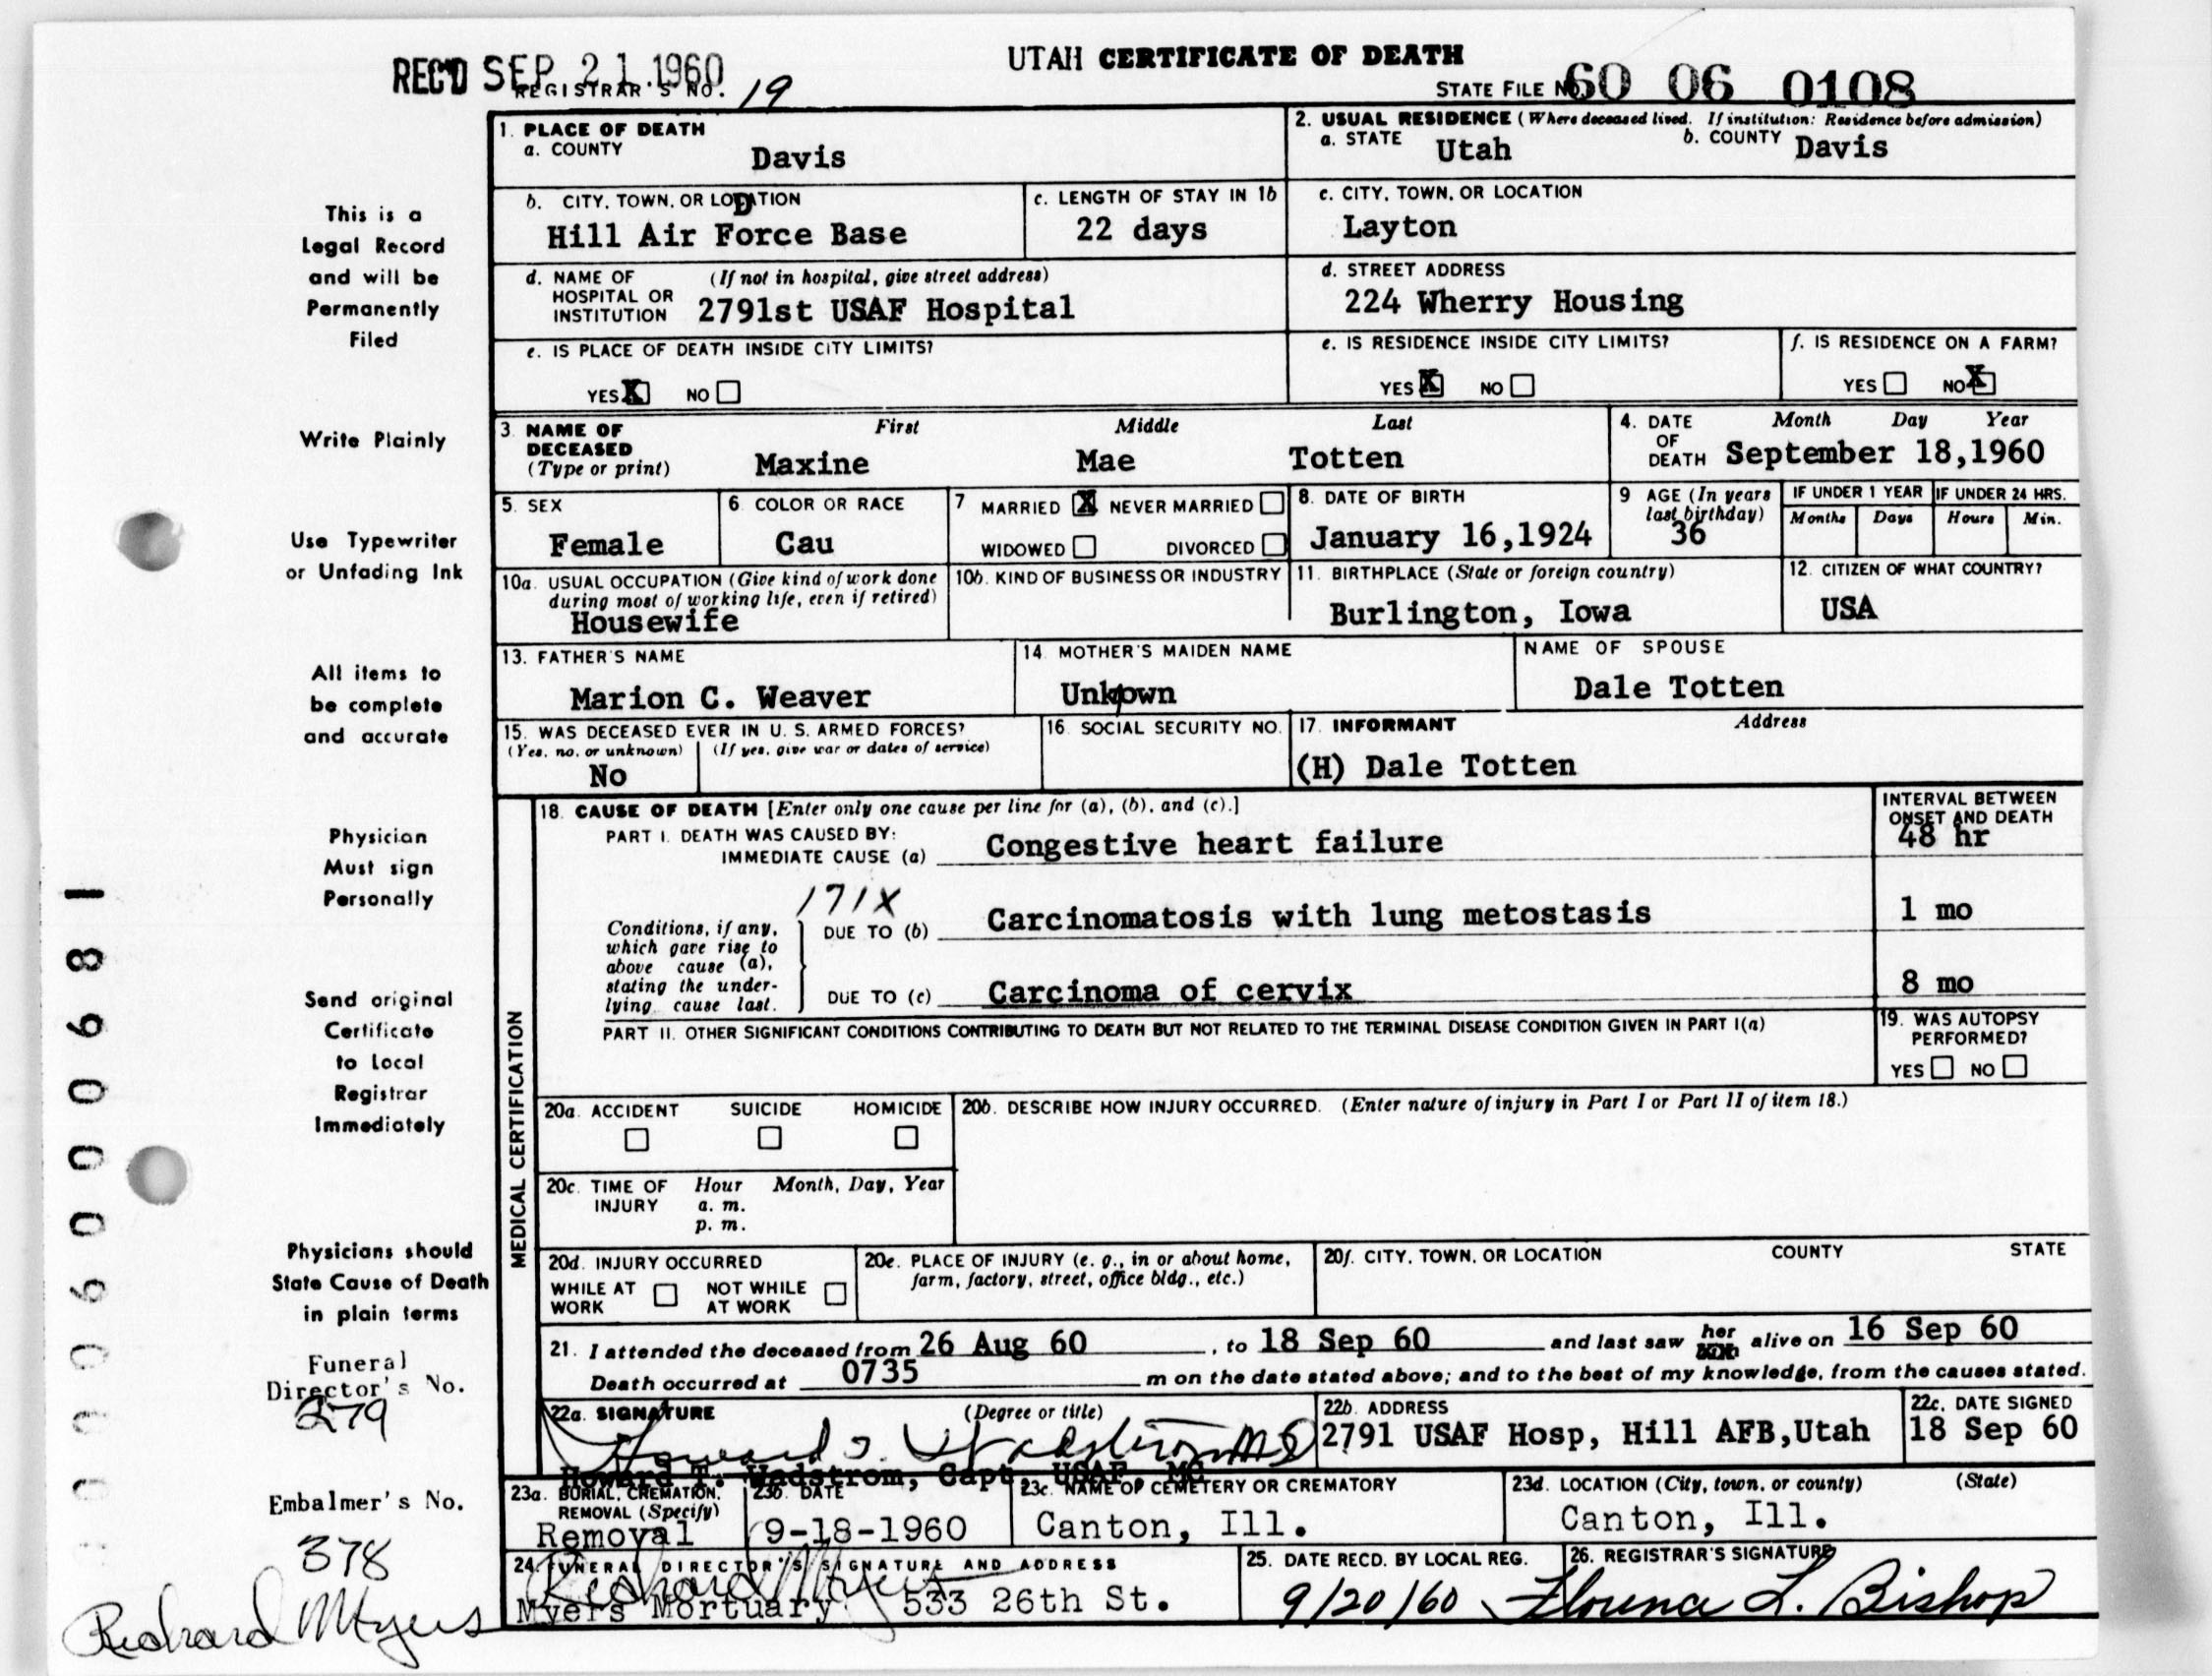 UTAH CERTIFICATE OF DEATH
REC'D SEP 21 1960
REGISTRAR'S NO. 19
STATE FILE NO. 60 06 0108
1. PLACE OF DEATH
a. COUNTY
Davis
2. USUAL RESIDENCE (Where deceased lived. If institution: Residence before admission)
a. STATE Utah b. COUNTY Davis
b. CITY, TOWN, OR LODATION
Hill Air Force Base
c. LENGTH OF STAY IN 1b
22 days
c. CITY, TOWN, OR LOCATION
Layton
d. NAME OF HOSPITAL OR INSTITUTION (If not in hospital, give street address)
2791st USAF Hospital
d. STREET ADDRESS
224 Wherry Housing
e. IS PLACE OF DEATH INSIDE CITY LIMITS?
YES X NO
e. IS RESIDENCE INSIDE CITY LIMITS?
YES X NO
f. IS RESIDENCE ON A FARM?
YES NO X
3. NAME OF DECEASED (Type or print)
First Middle Last
Maxine Mae Totten
4. DATE OF DEATH Month Day Year
September 18,1960
5. SEX
Female
6. COLOR OR RACE
Cau
7 MARRIED X NEVER MARRIED
WIDOWED DIVORCED
8. DATE OF BIRTH
January 16,1924
9 AGE (In years last birthday)
36
IF UNDER 1 YEAR
Months Days
IF UNDER 24 HRS.
Hours Min.
10a. USUAL OCCUPATION (Give kind of work done during most of working life, even if retired)
Housewife
10b. KIND OF BUSINESS OR INDUSTRY
11. BIRTHPLACE (State or foreign country)
Burlington, Iowa
12. CITIZEN OF WHAT COUNTRY?
USA
13. FATHER'S NAME
Marion C. Weaver
14. MOTHER'S MAIDEN NAME
Unknown
NAME OF SPOUSE
Dale Totten
15. WAS DECEASED EVER IN U. S. ARMED FORCES?
(Yes, no, or unknown) (If yes, give war or dates of service)
No
16. SOCIAL SECURITY NO.
17. INFORMANT Address
(H) Dale Totten
MEDICAL CERTIFICATION
18. CAUSE OF DEATH [Enter only one cause per line for (a), (b), and (c).]
INTERVAL BETWEEN ONSET AND DEATH
PART I. DEATH WAS CAUSED BY:
IMMEDIATE CAUSE (a) Congestive heart failure 48 hr
171X
Conditions, if any, which gave rise to above cause (a), stating the underlying cause last.
DUE TO (b) Carcinomatosis with lung metostasis 1 mo
DUE TO (c) Carcinoma of cervix 8 mo
PART II. OTHER SIGNIFICANT CONDITIONS CONTRIBUTING TO DEATH BUT NOT RELATED TO THE TERMINAL DISEASE CONDITION GIVEN IN PART I(a)
19. WAS AUTOPSY PERFORMED?
YES NO
20a. ACCIDENT SUICIDE HOMICIDE
20b. DESCRIBE HOW INJURY OCCURRED. (Enter nature of injury in Part I or Part II of item 18.)
20c. TIME OF INJURY Hour Month, Day, Year
a. m.
p. m.
20d. INJURY OCCURRED
WHILE AT WORK NOT WHILE AT WORK
20e. PLACE OF INJURY (e. g., in or about home, farm, factory, street, office bldg., etc.)
20f. CITY, TOWN, OR LOCATION COUNTY STATE
21. I attended the deceased from 26 Aug 60, to 18 Sep 60 and last saw her alive on 16 Sep 60
Death occurred at 0735 m on the date stated above; and to the best of my knowledge, from the causes stated.
22a. SIGNATURE (Degree or title)
Howard T. Wadstrom MD
Howard T. Wadstrom, Capt, USAF, MC
22b. ADDRESS
2791 USAF Hosp, Hill AFB,Utah
22c. DATE SIGNED
18 Sep 60
23a. BURIAL, CREMATION, REMOVAL (Specify)
Removal
23b. DATE
9-18-1960
23c. NAME OF CEMETERY OR CREMATORY
Canton, Ill.
23d. LOCATION (City, town, or county) (State)
Canton, Ill.
24. FUNERAL DIRECTOR'S SIGNATURE AND ADDRESS
Richard Myers
Myers Mortuary 533 26th St.
25. DATE RECD. BY LOCAL REG.
9/20/60
26. REGISTRAR'S SIGNATURE
Florence L. Bishop
This is a
Legal Record
and will be
Permanently
Filed
Write Plainly
Use Typewriter
or Unfading Ink
All items to
be complete
and accurate
Physician
Must sign
Personally
Send original
Certificate
to Local
Registrar
Immediately
Physicians should
State Cause of Death
in plain terms
Funeral
Director's No.
279
Embalmer's No.
378
Richard Myers